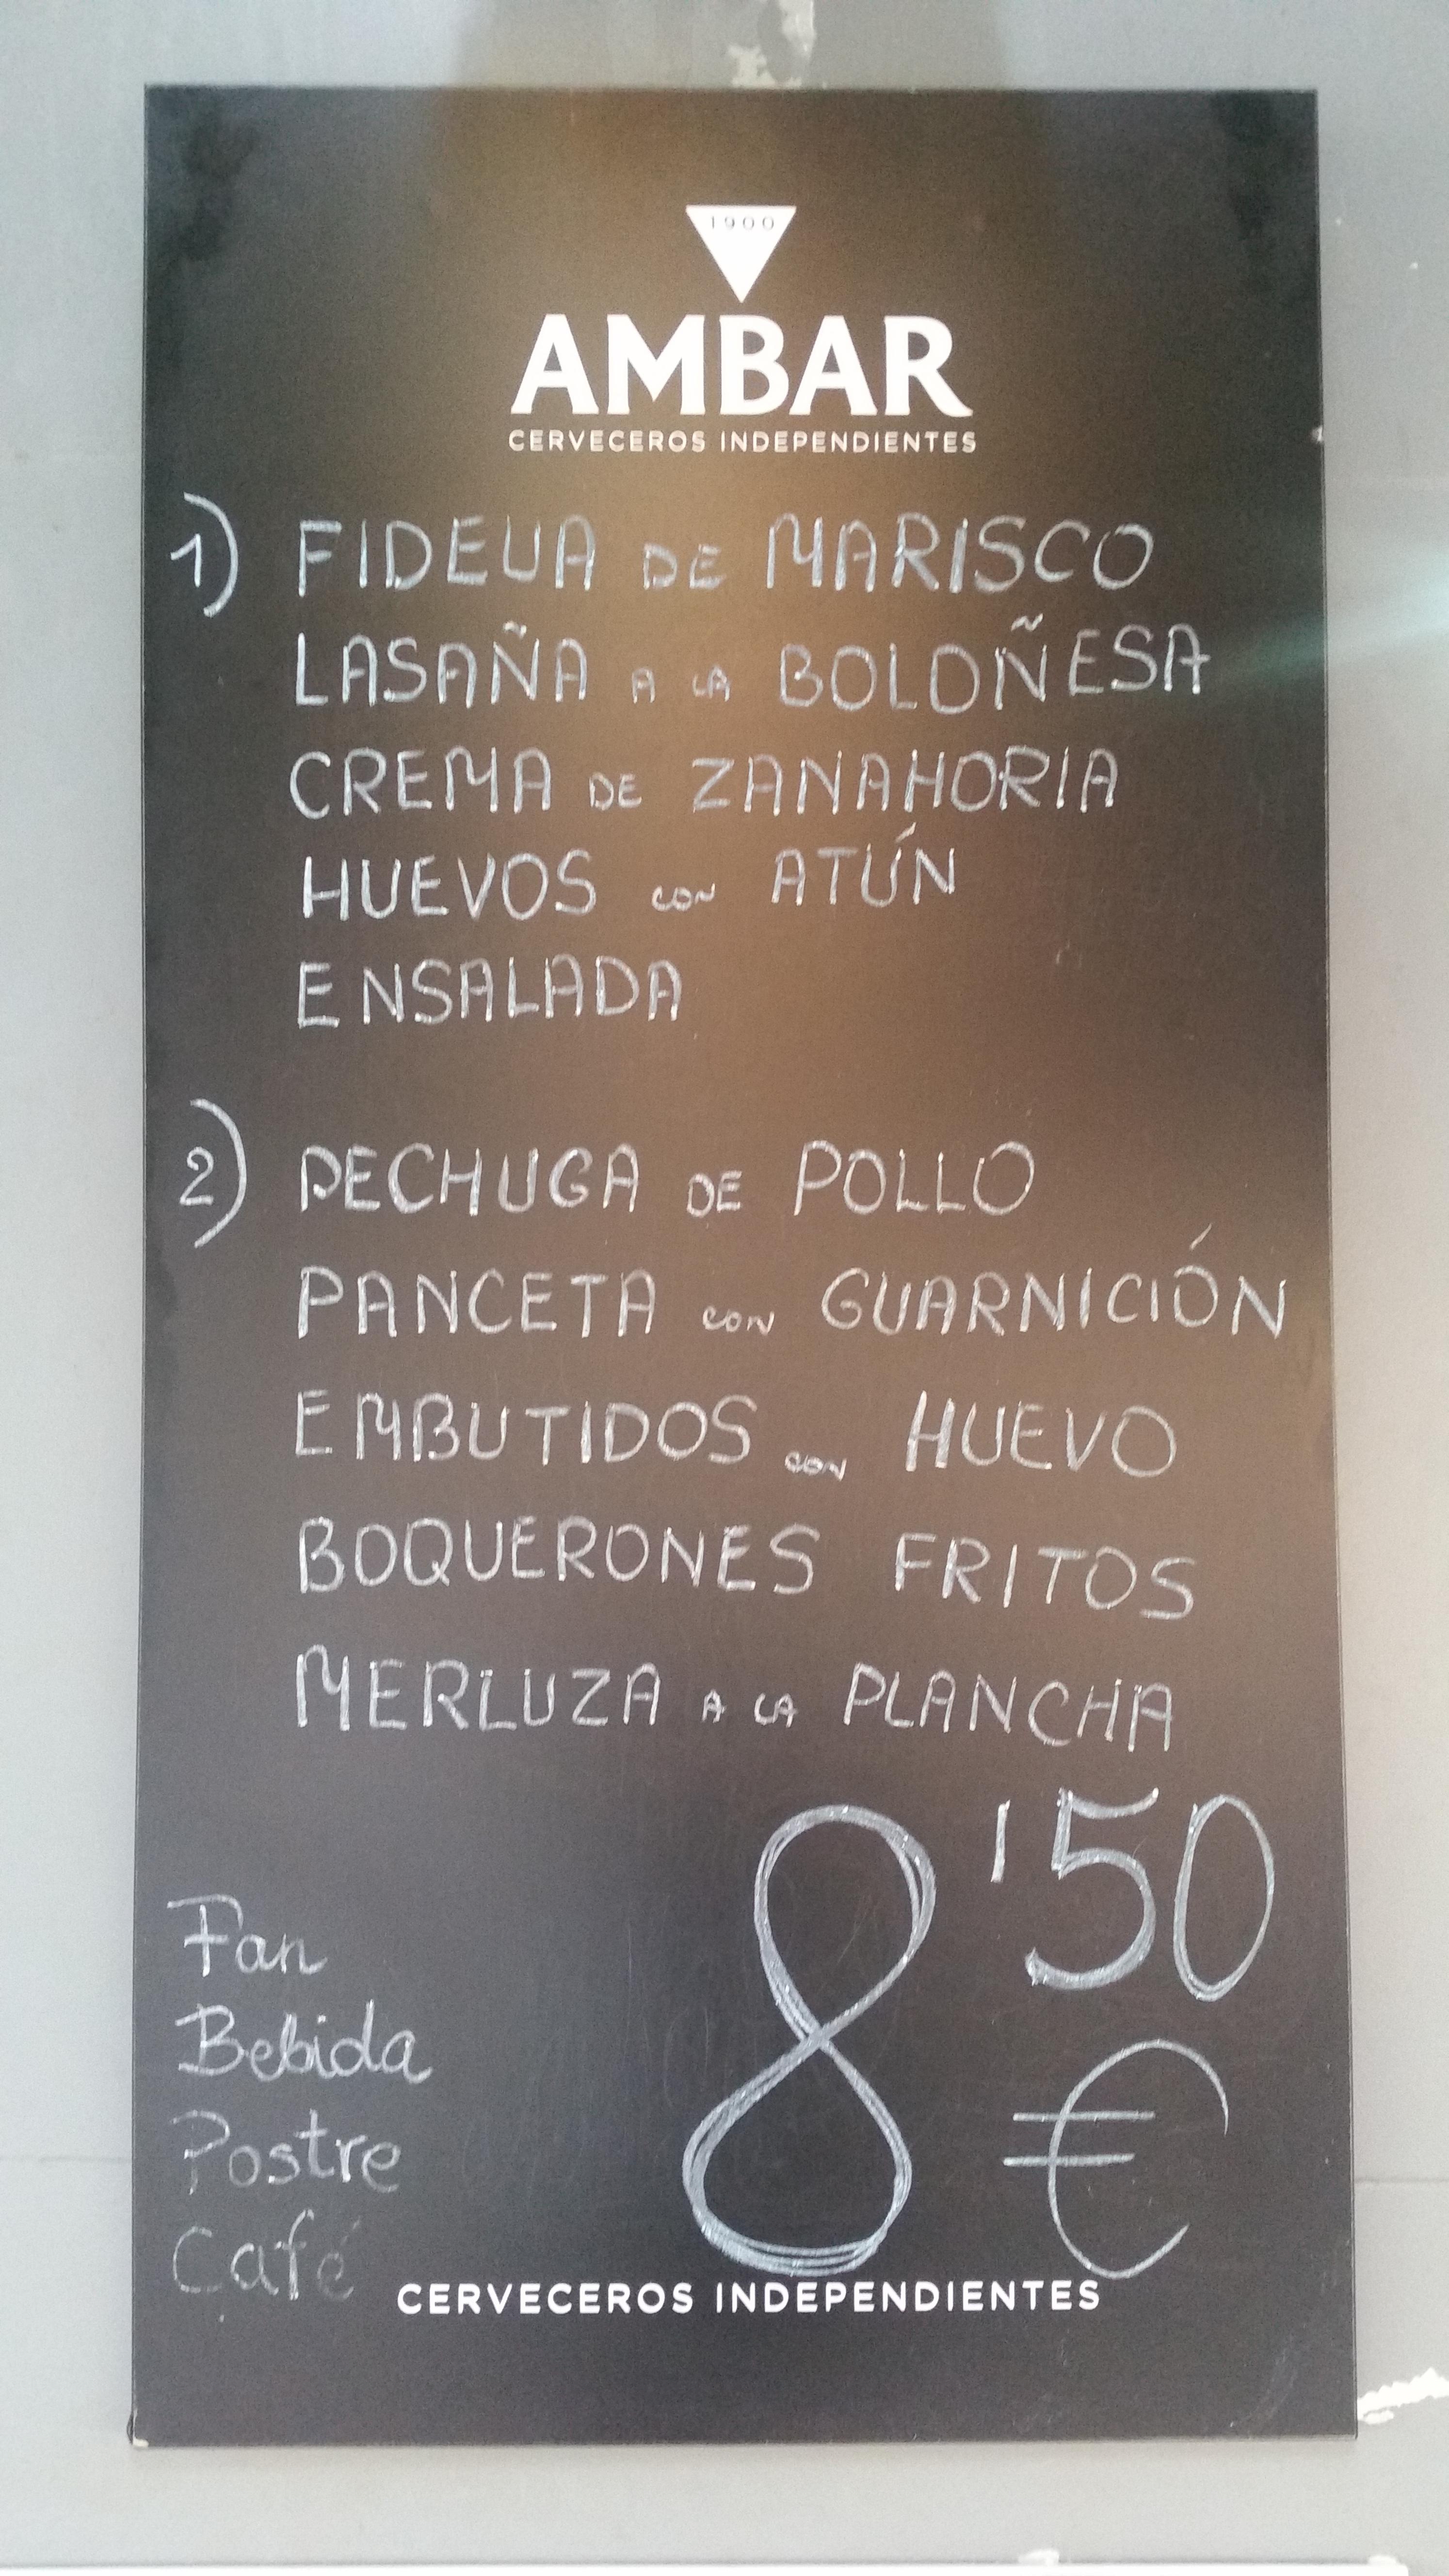 1900
AMBAR
CERVECEROS INDEPENDIENTES
1) FIDEUA DE MARISCO
LASAÑA A LA BOLOÑESA
CREMA DE ZANAHORIA
HUEVOS CON ATÚN
ENSALADA
2) PECHUGA DE POLLO
PANCETA CON GUARNICIÓN
EMBUTIDOS CON HUEVO
BOQUERONES FRITOS
MERLUZA A LA PLANCHA
8'50 €
Pan
Bebida
Postre
Café
CERVECEROS INDEPENDIENTES